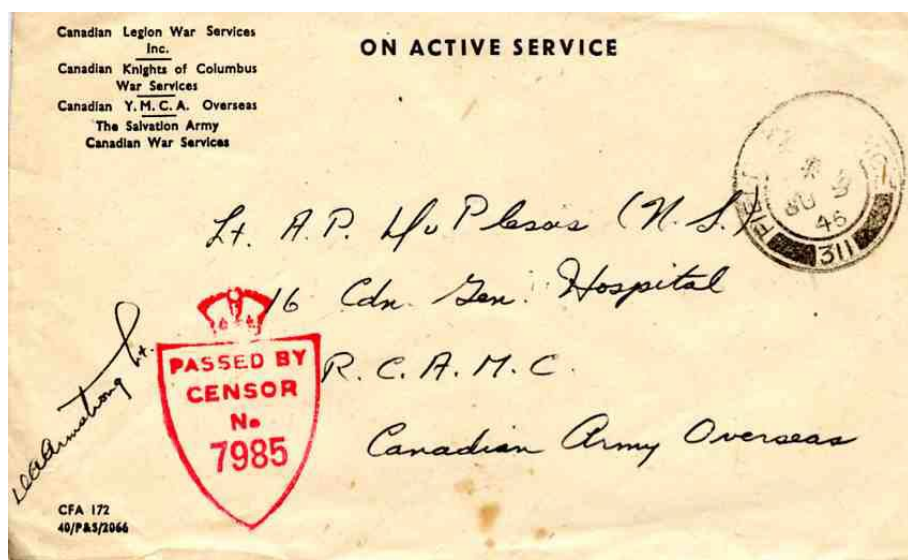 Canadian Legion War Services
Inc.
Canadian Knights of Columbus
War Services
Canadian Y.M.C.A. Overseas
The Salvation Army
Canadian War Services
ON ACTIVE SERVICE
FIEL
46
311
Lt. A.P. Du Plessis (N.S.)
16 Cdn. Gen. Hospital
R.C.A.M.C.
Canadian Army Overseas
PASSED BY
CENSOR
No
7985
Armstrong Lt.
CFA 172
40/P&S/2066